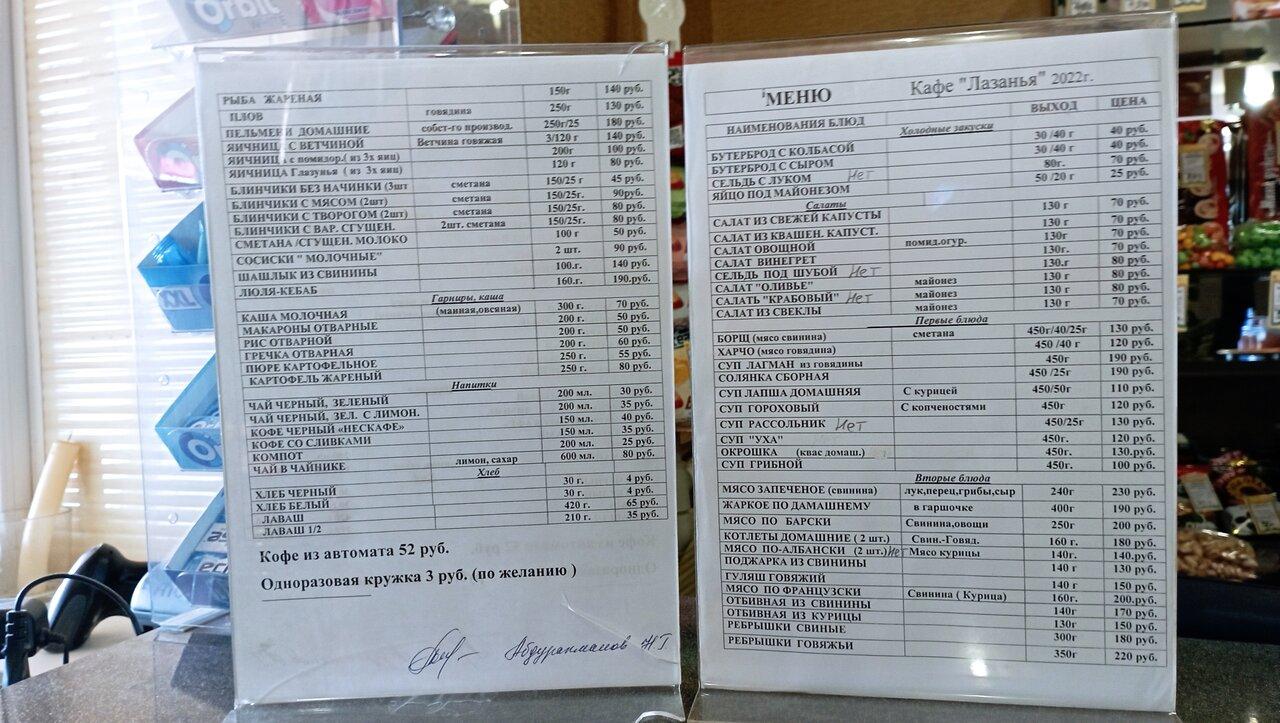 РЫБА ЖАРЕНАЯ 150г 140 руб.
ПЛОВ говядина 250г 130 руб.
ПЕЛЬМЕНИ ДОМАШНИЕ собст-го производ. 250г/25 180 руб.
ЯИЧНИЦА С ВЕТЧИНОЙ Ветчина говяжая 3/120 г 140 руб.
ЯИЧНИЦА с помидор.( из 3х яиц) 200г 100 руб.
ЯИЧНИЦА Глазунья ( из 3х яиц) 120 г 80 руб.
БЛИНЧИКИ БЕЗ НАЧИНКИ (3шт сметана 150/25 г 45 руб.
БЛИНЧИКИ С МЯСОМ (2шт) сметана 150/25г. 90руб.
БЛИНЧИКИ С ТВОРОГОМ (2шт) сметана 150/25г. 80 руб.
БЛИНЧИКИ С ВАР. СГУЩЕН. 2шт. сметана 150/25г. 80 руб.
СМЕТАНА /СГУЩЕН. МОЛОКО 100 г 50 руб.
СОСИСКИ " МОЛОЧНЫЕ" 2 шт. 90 руб.
ШАШЛЫК ИЗ СВИНИНЫ 100.г. 140 руб.
ЛЮЛЯ-КЕБАБ 160.г. 190.руб.
Гарниры, каша
КАША МОЛОЧНАЯ (манная,овсяная) 300 г. 70 руб.
МАКАРОНЫ ОТВАРНЫЕ 200 г. 50 руб.
РИС ОТВАРНОЙ 200 г. 50 руб.
ГРЕЧКА ОТВАРНАЯ 200 г. 60 руб.
ПЮРЕ КАРТОФЕЛЬНОЕ 250 г. 55 руб.
КАРТОФЕЛЬ ЖАРЕНЫЙ 250 г. 80 руб.
Напитки
ЧАЙ ЧЕРНЫЙ, ЗЕЛЕНЫЙ 200 мл. 30 руб.
ЧАЙ ЧЕРНЫЙ, ЗЕЛ. С ЛИМОН. 200 мл. 35 руб.
КОФЕ ЧЕРНЫЙ «НЕСКАФЕ» 150 мл. 40 руб.
КОФЕ СО СЛИВКАМИ 150 мл. 35 руб.
КОМПОТ 200 мл. 25 руб.
ЧАЙ В ЧАЙНИКЕ лимон, сахар 600 мл. 80 руб.
Хлеб
ХЛЕБ ЧЕРНЫЙ 30 г. 4 руб.
ХЛЕБ БЕЛЫЙ 30 г. 4 руб.
ЛАВАШ 420 г. 65 руб.
ЛАВАШ 1/2 210 г. 35 руб.
Кофе из автомата 52 руб.
Одноразовая кружка 3 руб. (по желанию )
Абдурахманов
МЕНЮ Кафе "Лазанья" 2022г.
НАИМЕНОВАНИЯ БЛЮД ВЫХОД ЦЕНА
Холодные закуски
БУТЕРБРОД С КОЛБАСОЙ 30 /40 г 40 руб.
БУТЕРБРОД С СЫРОМ 30 /40 г 40 руб.
СЕЛЬДЬ С ЛУКОМ Нет 80г. 70 руб.
ЯЙЦО ПОД МАЙОНЕЗОМ 50 /20 г 25 руб.
Салаты
САЛАТ ИЗ СВЕЖЕЙ КАПУСТЫ 130 г 70 руб.
САЛАТ ИЗ КВАШЕН. КАПУСТ. 130 г 70 руб.
САЛАТ ОВОЩНОЙ помид.огур. 130г 70 руб.
САЛАТ ВИНЕГРЕТ 130г. 70 руб.
СЕЛЬДЬ ПОД ШУБОЙ Нет 130.г 80 руб.
САЛАТ "ОЛИВЬЕ" майонез 130 г 80 руб.
САЛАТЬ "КРАБОВЫЙ" Нет майонез 130 г 80 руб.
САЛАТ ИЗ СВЕКЛЫ майонез 130 г 70 руб.
Первые блюда
БОРЩ (мясо свинина) сметана 450г/40/25г 130 руб.
ХАРЧО (мясо говядина) 450 /40 г 120 руб.
СУП ЛАГМАН из говядины 450г 190 руб.
СОЛЯНКА СБОРНАЯ 450 /25г 190 руб.
СУП ЛАПША ДОМАШНЯЯ С курицей 450/50г 110 руб.
СУП ГОРОХОВЫЙ С копченостями 450г 120 руб.
СУП РАССОЛЬНИК Нет 450/25г 130 руб.
СУП "УХА" 450г. 120 руб.
ОКРОШКА (квас домаш.) 450г. 130.руб.
СУП ГРИБНОЙ 450г. 100 руб.
Вторые блюда
МЯСО ЗАПЕЧЕНОЕ (свинина) лук,перец,грибы,сыр 240г 230 руб.
ЖАРКОЕ ПО ДАМАШНЕМУ в гаршочке 400г 190 руб.
МЯСО ПО БАРСКИ Свинина,овощи 250г 200 руб.
КОТЛЕТЫ ДОМАШНИЕ ( 2 шт.) Свин.-Говяд. 160 г. 180 руб.
МЯСО ПО-АЛБАНСКИ (2 шт.) Нет Мясо курицы 140г. 140.руб.
ПОДЖАРКА ИЗ СВИНИНЫ 140 г 130 руб.
ГУЛЯШ ГОВЯЖИЙ 140 г 150 руб.
МЯСО ПО ФРАНЦУЗСКИ Свинина ( Курица) 160г. 200.руб.
ОТБИВНАЯ ИЗ СВИНИНЫ 140г 170 руб.
ОТБИВНАЯ ИЗ КУРИЦЫ 130г 150 руб.
РЕБРЫШКИ СВИНЫЕ 300г 180 руб.
РЕБРЫШКИ ГОВЯЖЬИ 350г 220 руб.
Orbit